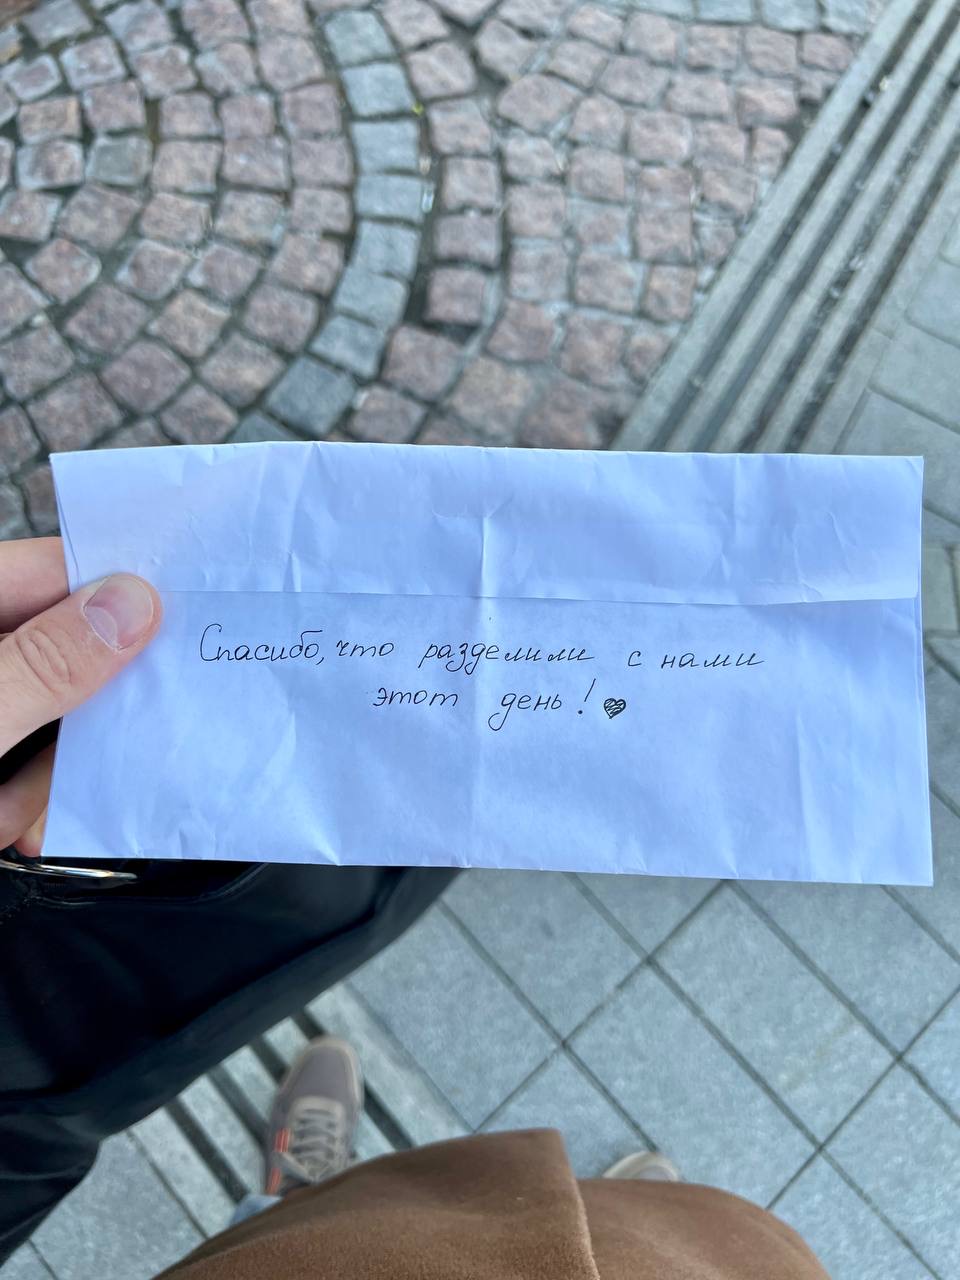 Спасибо, что разделили с нами
этот день! ♥